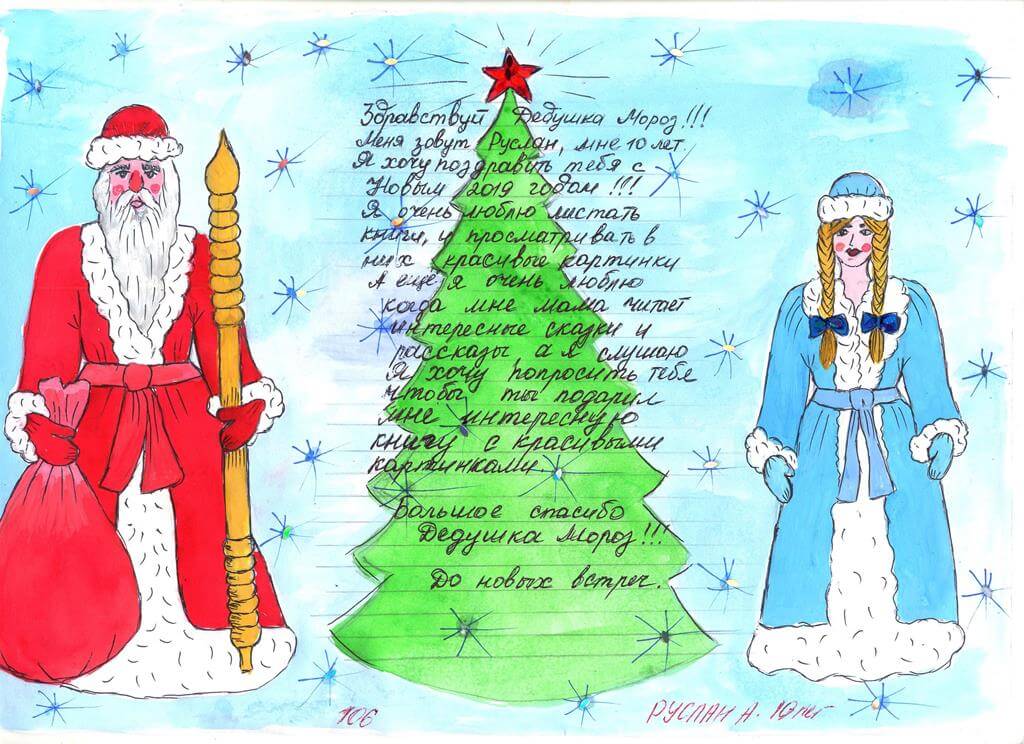 Здравствуй Дедушка Мороз!!!
Меня зовут Руслан, мне 10 лет.
Я хочу поздравить тебя с
Новым 2019 годом!!!
Я очень люблю листать
книги, и просматривать в
них красивые картинки
А ещё я очень люблю
когда мне мама читает
интересные сказки и
рассказы а я слушаю
Я хочу попросить тебя
чтобы, ты подарил
мне интересную
книгу с красивыми
картинками
Большое спасибо
Дедушка Мороз!!!
До новых встреч.
106
РУСЛАН А. 10лет